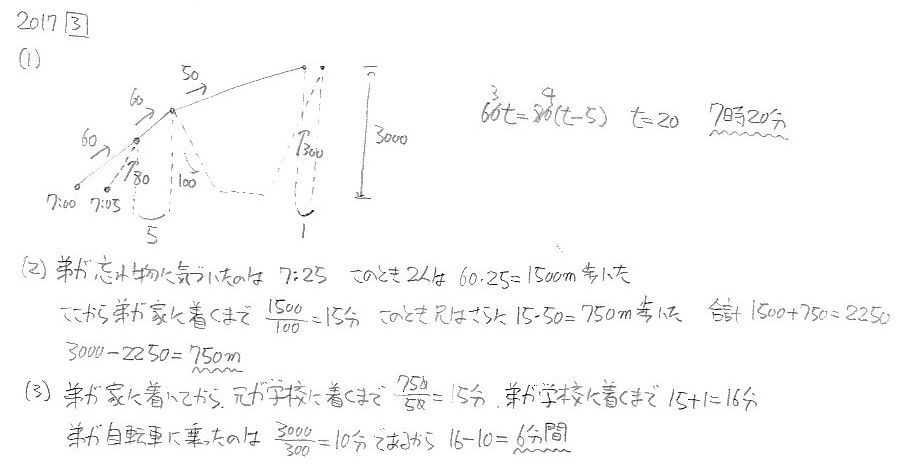 2017 3
(1)
50
60
60
80
100
300
3000
7:00 7:05
5
1
60t=80(t-5) t=20 7時20分
3 4
(2) 弟が忘れ物に気づいたのは 7:25 このとき2人は 60・25=1500m歩いた
ここから弟が家に着くまで 1500/100=15分 このとき兄はさらに 15・50=750m歩いた 合計 1500+750=2250
3000-2250=750m
(3) 弟が家に着いてから、兄が学校に着くまで 750/50=15分、弟が学校に着くまで 15+1=16分
弟が自転車に乗ったのは 3000/300=10分であるから 16-10=6分間